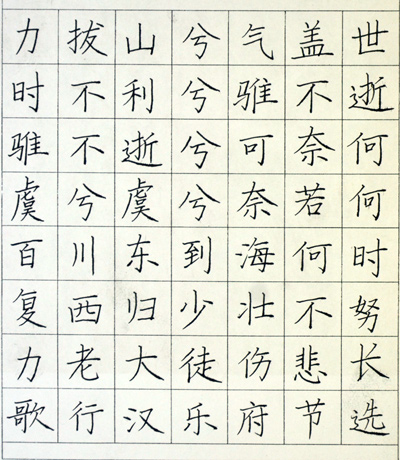 力拔山兮气盖世
时不利兮骓不逝
骓不逝兮可奈何
虞兮虞兮奈若何
百川东到海何时
复西归少壮不努
力老大徒伤悲长
歌行汉乐府节选